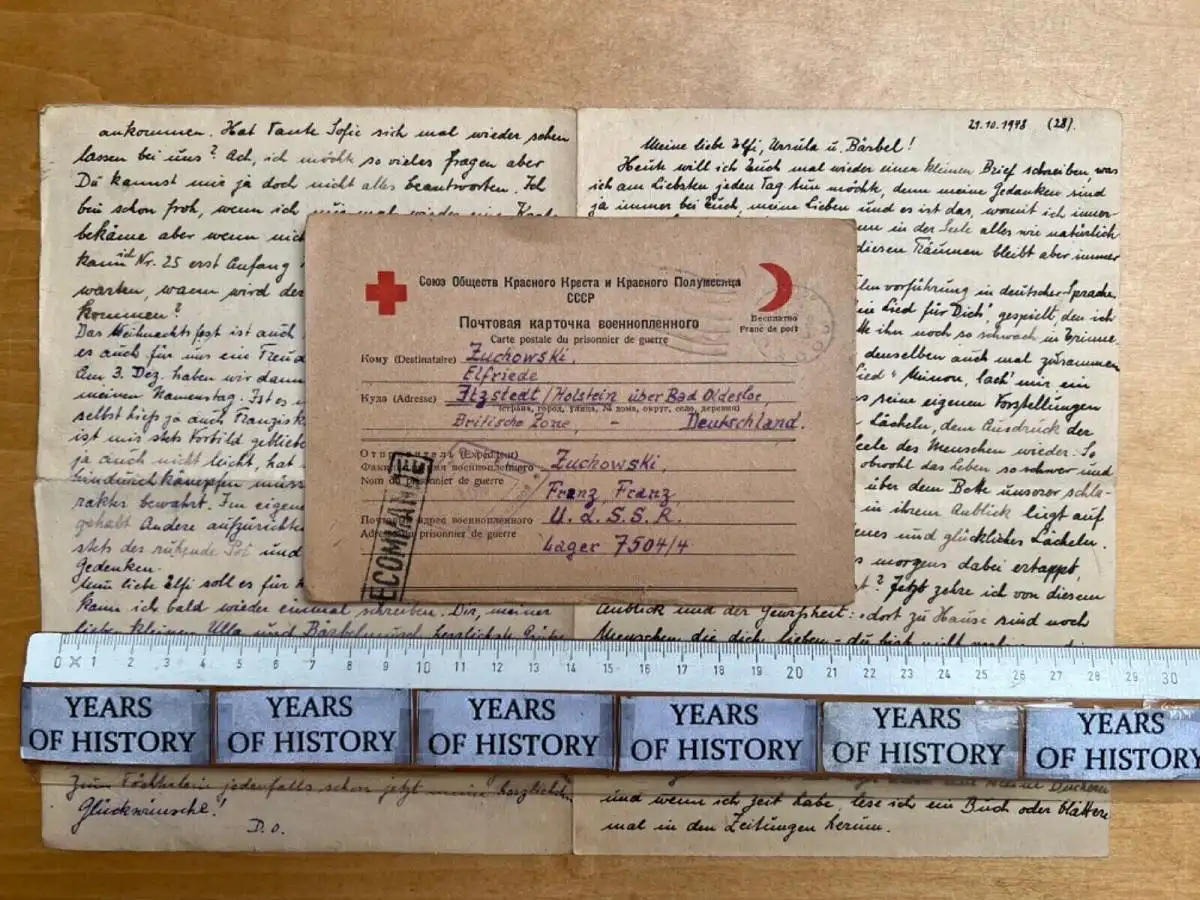 ankommen. Hat Tante Sofie sich mal wieder sehen
lassen bei uns? Ach, ich möcht so vieles fragen aber
Du kannst mir ja doch nicht alles beantworten. Ich
bin schon froh, wenn ich mal wieder eine
bekäme aber wenn nich
kann ich Nr. 25 erst Anfang
warten, wann wird der
kommen?
Das Weihnachtsfest ist auch
es auch für uns ein Freud
Am 3. Dez. haben wir dann
meinen Namenstag. Ist es
selbst hieß ja auch Franzisk
ist mir stets Vorbild gebliebe
ja auch nicht leicht, hat
hindurch kämpfen müss
rakter bewahrt. Im eigene
gehabt Andere aufzurichte
stets des und
gedenken.
Nun liebe Elfi soll es für
kann ich bald wieder einmal schreiben. Dir, meiner
lieben kleinen Ulla und herzlichste Grüße
jedenfalls schon jetzt meine herzlich
Glückwünsche!
D.O.
29.10.1948 (28).
Meine liebe Elfi, Ursula u. Bärbel!
Heute will ich Euch mal wieder einen kleinen Brief schreiben, was
ich am Liebsten jeden Tag tun möcht, denn meine Gedanken sind
ja immer bei Euch meine Lieben und es ist das, womit ich immer
in der Seele alles wie natürlich
diesen Träumen bleibt aber immer
vorführung in deutscher Sprache
Lied für Dich", gespielt, den ich
ihn noch so schwach in Erinne
denselben auch mal zusammen
lied "Mignon, lach' mir ein
seine eigenen Vorstellungen
Lächeln, dem Ausdruck der
des Menschen wieder. So
obwohl das Leben so schwer und
über dem Bette unserer schla-
in ihrem Anblick liegt auf
und glückliches Lächeln.
morgens dabei ertappt,
? Jetzt zehre ich von diesem
Anblick und der Gewißheit: dort zu Hause sind noch
Menschen die dich lieben - du bist nicht
und wenn ich Zeit habe, lese ich ein Buch oder blättere
mal in den Zeitungen herum.
Союз Обществ Красного Креста и Красного Полумесяца
СССР
Бесплатно
Franc de port
Почтовая карточка военнопленного
Carte postale du prisonnier de guerre
Кому (Destinataire) Zuchowski,
Elfriede
Куда (Adresse) Itzstedt/Holstein über Bad Oldesloe,
(страна, город, улица, № дома, округ, село, деревня)
Britische Zone, - Deutschland.
Отправитель (Expéditeur)
военнопленного Zuchowski,
Nom du prisonnier de guerre
Franz, Franz
Почтовый адрес военнопленного U.d.S.S.R.
Adresse du prisonnier de guerre
Lager 7504/4
ECOMMANDÉ
0 1 2 3 4 5 6 7 8 9 10 11 12 13 14 15 16 17 18 19 20 21 22 23 24 25 26 27 28 29 30
YEARS OF HISTORY
YEARS OF HISTORY
YEARS OF HISTORY
YEARS OF HISTORY
YEARS OF HISTORY
YEARS OF HISTORY